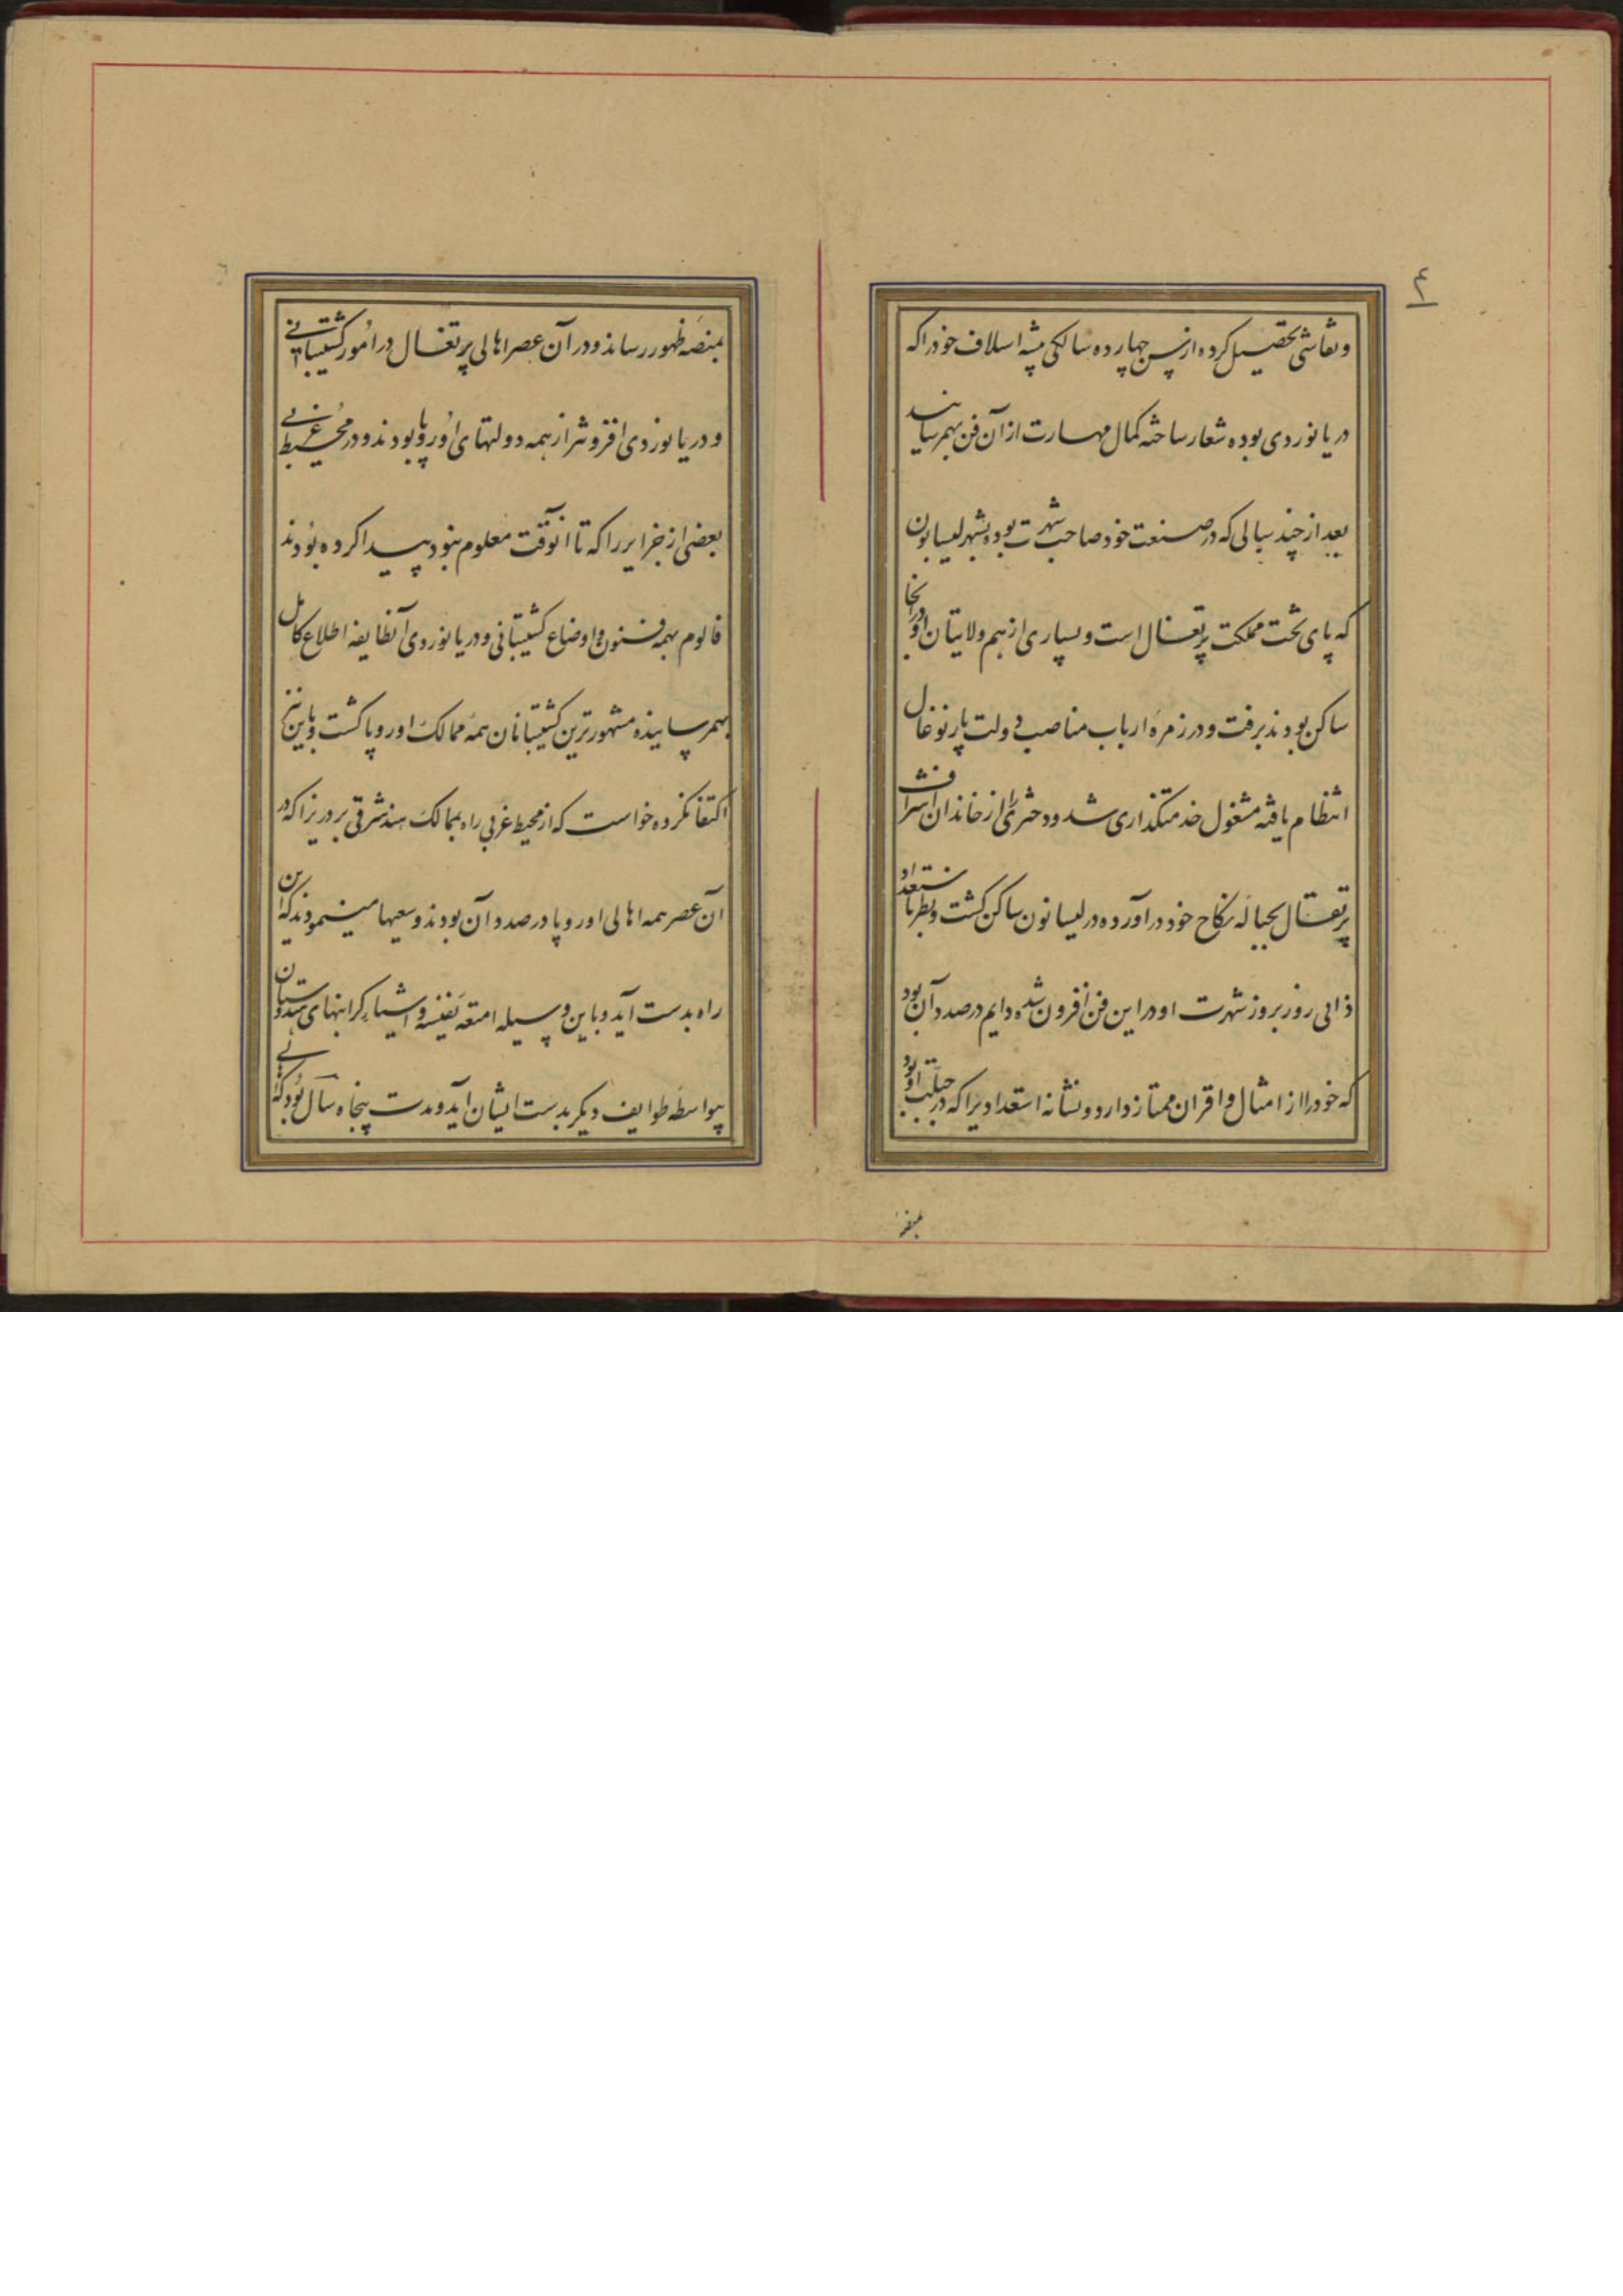 ۴
و نقاشی تحصیل کرده از سن چهارده سالگی پیشه اسلاف خود را که
دریا نوردی بوده شعار ساخته کمال مهارت از آن فن بهم رسانید
بعد از چند سالی که در صنعت خود صاحب شهرت بوده بشهر لیسابون
که پای تخت مملکت پرتغال است و بسیاری از هم ولایتیان او در آنجا
ساکن بودند برفت و در زمرهٔ ارباب مناصب دولت پارتوغال
انتظام یافته مشغول خدمتگذاری شد و دختری را از خاندان اشراف
پرتغال بحبالهٔ نکاح خود در آورده در لیسابون ساکن گشت و بنظر باستعداد
ذاتی روز بروز شهرت او در این فن افزون شده دایم در صدد آن بود
که خود را از امثال و اقران ممتاز دارد و نشانهٔ استعدادیرا که در جبلت او بود
بمنصه
بمنصهٔ ظهور رساند و در آن عصر اهالی پرتغال در امور کشتیبانی
و دریا نوردی افزونتر از همه دولتهای اوروپا بودند و در محیط غربی
بعضی از جزایر را که تا آنوقت معلوم نبود پیدا کرده بودند
قالوم بهمه فنون و اوضاع کشتیبانی و دریا نوردی آنطایفه اطلاع کامل
بهمرسانیده مشهورترین کشتیبانان همهٔ ممالک اوروپا گشت و باین نیز
اکتفا نکرده خواست که از محیط غربی راه بممالک هند شرقی برد زیرا که در
آن عصر همه اهالی اوروپا در صدد آن بودند و سعیها مینمودند که این
راه بدست آید و باین وسیله امتعهٔ نفیسه و اشیاء گرانبهای هندوستان
بیواسطه طوایف دیگر بدست ایشان آید و مدت پنجاه سال بود که